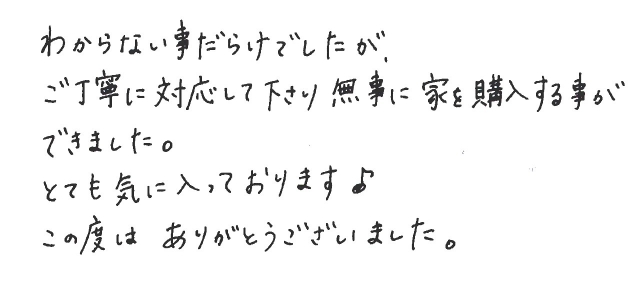 わからない事だらけでしたが、
ご丁寧に対応して下さり 無事に 家を購入する事が
できました。
とても気に入っております♪
この度は ありがとうございました。